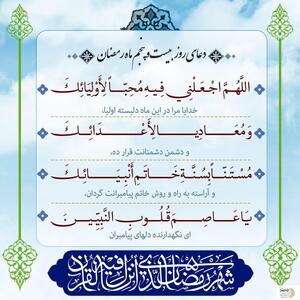 دعای روز بیست و پنجم ماه رمضان
اللَّهُمَّ اجْعَلْنِي فِيهِ مُحِبّاً لِأَوْلِيَائِكَ
خدایا مرا در این ماه دلبسته اولیا،
وَمُعَادِياً لِأَعْدَائِكَ
و دشمن دشمنانت قرار ده،
مُسْتَنّاً بِسُنَّةِ خَاتَمِ أَنْبِيَائِكَ
و آراسته به راه و روش خاتم پیامبرانت گردان،
يَا عَاصِمَ قُلُوبِ النَّبِيِّينَ
ای نگهدارنده دلهای پیامبران
شهر رمضان الذی انزل فیه القرآن